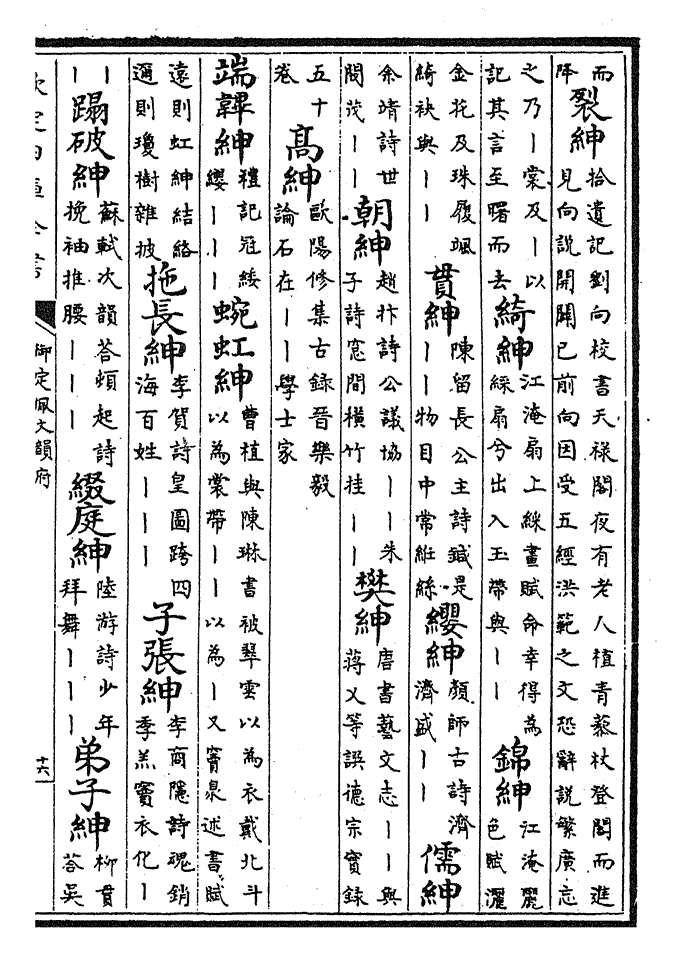 而降裂紳拾遺記劉向校書天禄閣夜有老人植青藜杖登閣而進見向説開闢已前向因受五經洪範之文恐辭説繁廣忘
之乃丨裳及丨以記其言至曙而去綺紳江淹扇上綵畫賦命幸得為綵扇兮出入玉帶與丨丨錦紳江淹麗色賦灑
金花及珠履颯綺袂與丨丨貫紳陳留長公主詩鍼是丨丨物目中常絍絲纓紳顔師古詩濟濟盛丨丨儒紳
余靖詩世閥茂丨丨朝紳趙抃詩公議協丨丨朱子詩窓間横竹挂丨丨樊紳唐書藝文志丨丨與蔣乂等譔德宗實録
五十卷高紳歐陽修集古録晉樂毅論石在丨丨學士家
端韠紳禮記冠緌纓丨丨丨蜿虹紳曹植與陳琳書被翠雲以為衣戴北斗以為裳帶丨丨以為丨又竇泉述書賦
遠則虹紳結絡邇則瓊樹雜披拖長紳李賀詩皇圖跨四海百姓丨丨丨子張紳李商隱詩魂銷季羔竇衣化丨
丨丨蹋破紳蘇軾次韻答頓起詩挽袖推腰丨丨丨綴庭紳陸游詩少年拜舞丨丨丨弟子紳柳貫答吳
欽定四庫全書
御定佩文韻府
十六